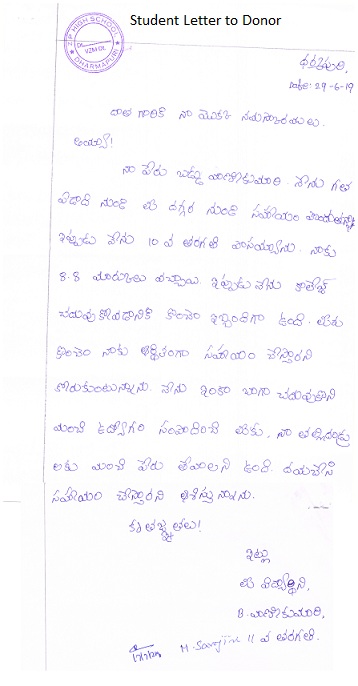 Student Letter to Donor
Z.P HIGH SCHOOL
VZM Dt.
DHARMAPURI
ధర్మపురి,
Date: 29-6-19
దాత గారికి నా మొదటి నమస్కారములు.
అయ్యా!
నా పేరు బడ్డు వాణికుమారి. నేను గత
ఏడాది నుండి మీ దగ్గర నుండి సహాయం
ఇప్పుడు నేను 10 వ తరగతి పాసయ్యాను. నాకు
8.8 మార్కులు వచ్చాయి. ఇప్పుడు నేను కాలేజ్
చదువుకోవడానికి కొంచెం ఇబ్బందిగా ఉంది. మీరు
కొంచెం నాకు ఆర్థికంగా సహాయం చేస్తారని
కోరుకుంటున్నాను. నేను ఇంకా బాగా చదువుకొని
మంచి ఉద్యోగం సంపాదించి మీకు, నా తల్లిదండ్రు
లకు మంచి పేరు తేవాలని ఉంది. దయచేసి
సహాయం చేస్తారని ఆశిస్తున్నాను.
కృతజ్ఞతలు!
ఇట్లు
మీ విద్యార్థిని,
B. వాణికుమారి,
11 వ తరగతి.